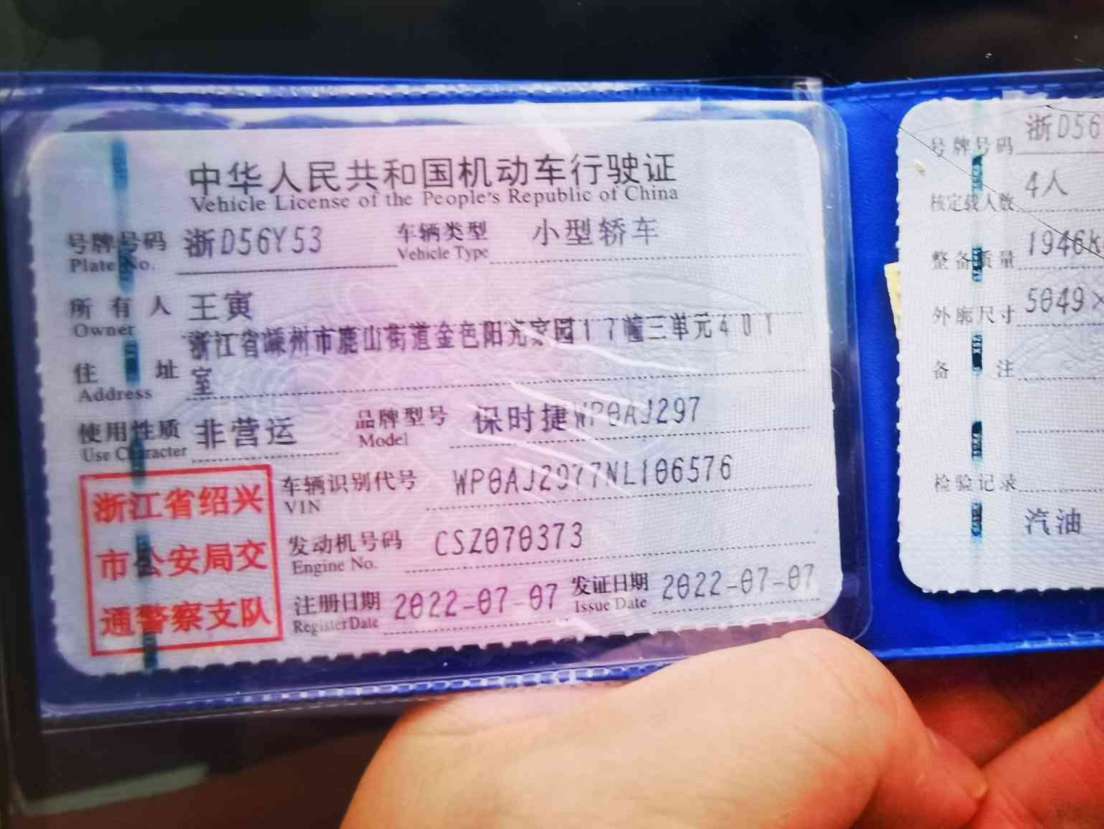 中华人民共和国机动车行驶证
Vehicle License of the People's Republic of China
号牌号码 浙D56Y53 车辆类型 小型轿车
Plate No. Vehicle Type
所有人 王寅
Owner
浙江省嵊州市鹿山街道金色阳光家园17幢三单元401
住址 室
Address
使用性质 非营运 品牌型号 保时捷WP0AJ297
Use Character Model
浙江省绍兴
市公安局交
通警察支队
车辆识别代号 WP0AJ2977NL106576
VIN
发动机号码 CSZ070373
Engine No.
注册日期 2022-07-07 发证日期 2022-07-07
Register Date Issue Date
号牌号码 浙D56
核定载人数 4人
整备质量 1946k
外廓尺寸 5049×
备注
检验记录
汽油